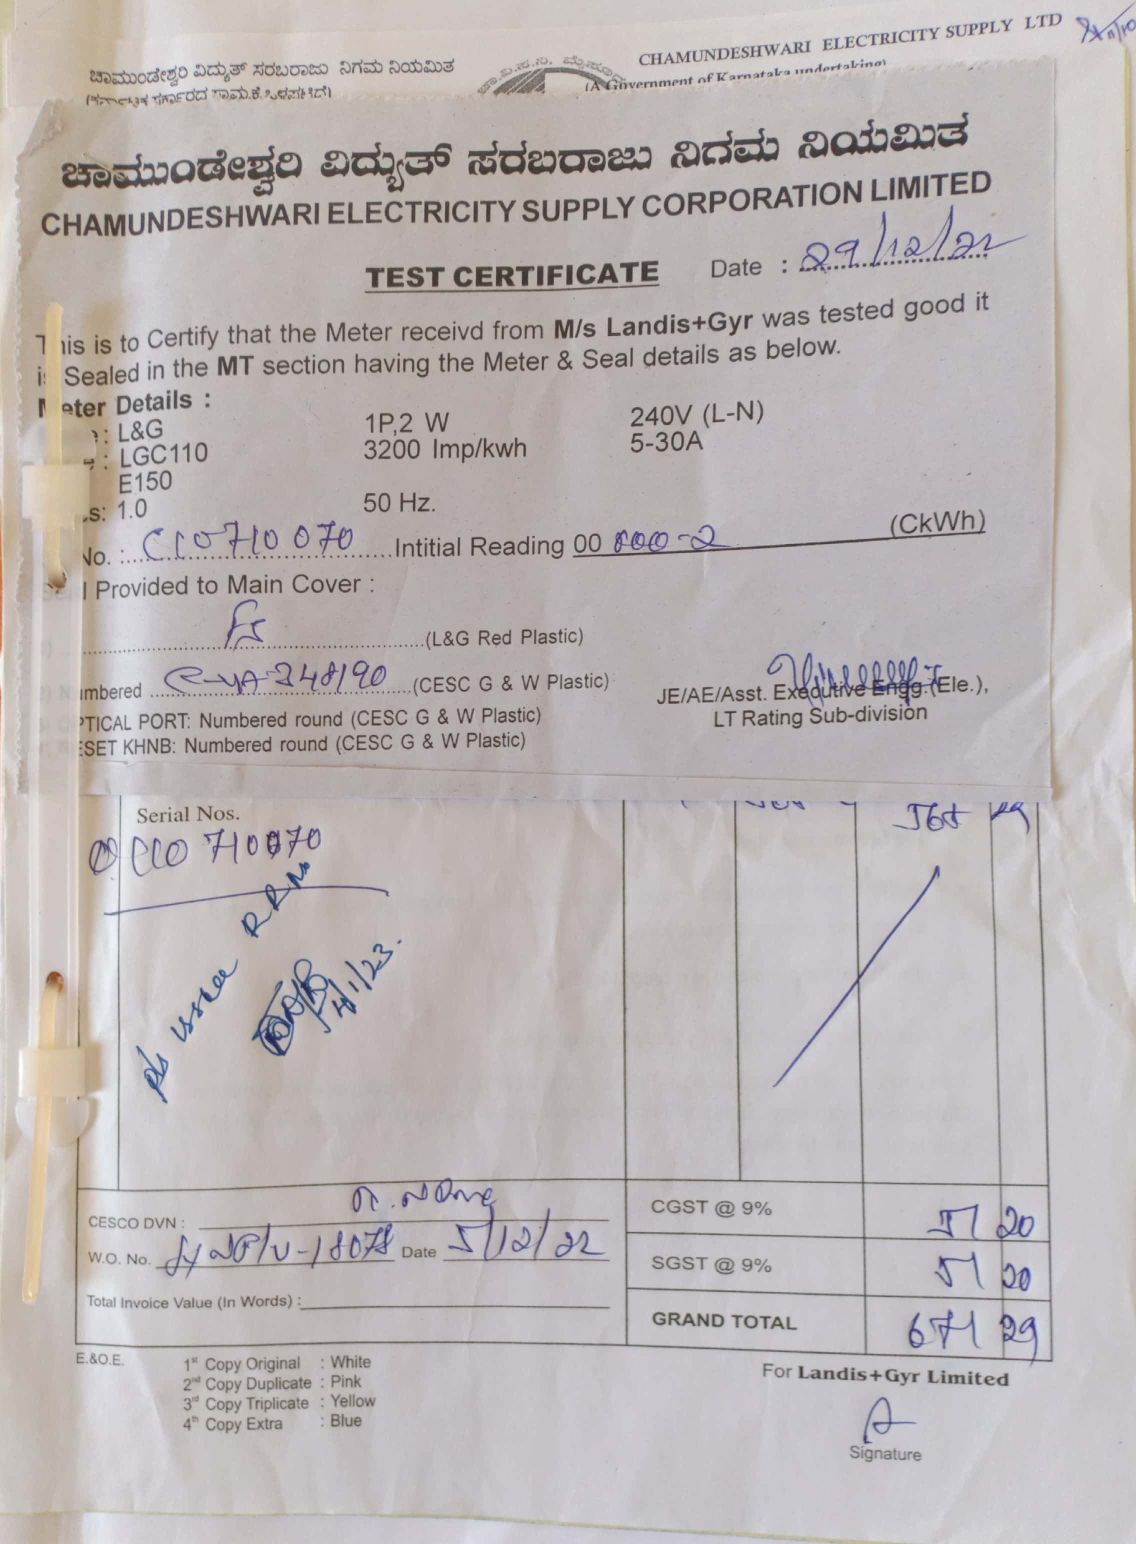 ಚಾಮುಂಡೇಶ್ವರಿ ವಿದ್ಯುತ್ ಸರಬರಾಜು ನಿಗಮ ನಿಯಮಿತ
CHAMUNDESHWARI ELECTRICITY SUPPLY LTD
(A Government of Karnataka undertaking)
ಚಾಮುಂಡೇಶ್ವರಿ ವಿದ್ಯುತ್ ಸರಬರಾಜು ನಿಗಮ ನಿಯಮಿತ
CHAMUNDESHWARI ELECTRICITY SUPPLY CORPORATION LIMITED
TEST CERTIFICATE Date : 29/12/22
This is to Certify that the Meter receivd from M/s Landis+Gyr was tested good it
is Sealed in the MT section having the Meter & Seal details as below.
Meter Details :
: L&G 1P,2 W 240V (L-N)
: LGC110 3200 Imp/kwh 5-30A
E150
s: 1.0 50 Hz.
No. : C10710070 Intitial Reading 00 000-2 (CkWh)
l Provided to Main Cover :
(L&G Red Plastic)
umbered (CESC G & W Plastic)
JE/AE/Asst. Executive Engg.(Ele.),
PTICAL PORT: Numbered round (CESC G & W Plastic)
LT Rating Sub-division
ESET KHNB: Numbered round (CESC G & W Plastic)
Serial Nos. 568 29
C10 710070
pls issue RRNo
4/1/23.
CESCO DVN : CGST @ 9% 51 20
W.O. No. Date 5/12/22
SGST @ 9% 51 20
Total Invoice Value (In Words) :
GRAND TOTAL 671 29
E.&O.E.
1st Copy Original : White
2nd Copy Duplicate : Pink
3rd Copy Triplicate : Yellow
4th Copy Extra : Blue
For Landis+Gyr Limited
Signature